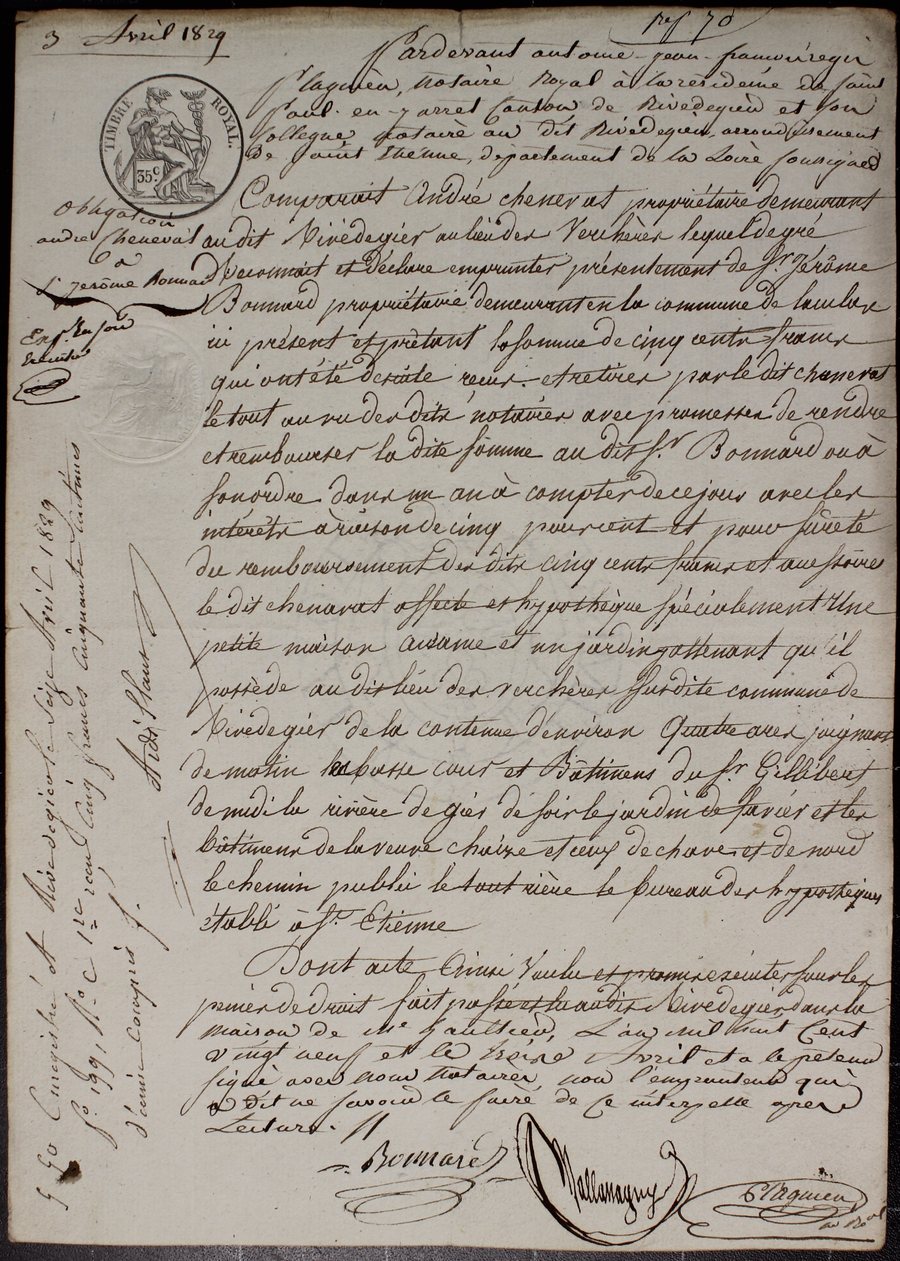 3 Avril 1829
Pardevant antoine jean françois régis
notaire Royal à la résidence de saint
Paul-en-jarret Canton de Rivedegier et son
Collegue notaire au dit Rivedegier, arrondissement
de saint Etienne, département de la Loire soussignés
TIMBRE ROYAL.
35 c.
Comparait André chenevat propriétaire demeurant
au dit Rivedegier au lieu des Verchères lequel de gré
Reconnait et déclare emprunter présentement de Sr. Jérôme
Bonnard propriétaire demeurant en la commune de
ici présent et prêtant la somme de cinq cents francs
qui ont été de suite reçus et retirés par le dit chenevat
le tout au vu des dits notaires avec promesse de rendre
et rembourser la dite somme au dit Sr. Bonnard ou à
son ordre dans un an à compter de ce jour avec les
intérêts à raison de cinq pour cent et pour sûreté
du remboursement des dits cinq cents francs et accessoires
le dit chenavat affecte et hypothèque spécialement une
petite maison et un jardin attenant qu'il
possède au dit lieu des verchères susdite commune de
Rivedegier de la contenue d'environ Quatre ares joignant
de matin la basse cour et Bâtimens du Sr Gillibert
de midi la rivière de giés de soir le jardin de et les
bâtimens de la veuve chaize et ceux de chave et de nord
le chemin public le tout rière le bureau des hypothèques
établi à St. Etienne
Dont acte Ainsi Voulu et promis exécuter sous les
peines de droit fait passé et lu au dit Rivedegier dans la
maison de me L'an mil huit Cent
vingt neuf et le trois Avril et a le prêteur
signé avec nous notaires non l'emprunteur qui
a dit ne savoir le faire de ce interpellé après
Lecture.
Obligation
andre Chenevat
à
Sr Jerôme Bonnard
Enregistré à Rivedegier le Seize Avril 1829
fo 199, Ro. C 1re reçu Cinq francs Cinquante Centimes
décime compris
Bonnard